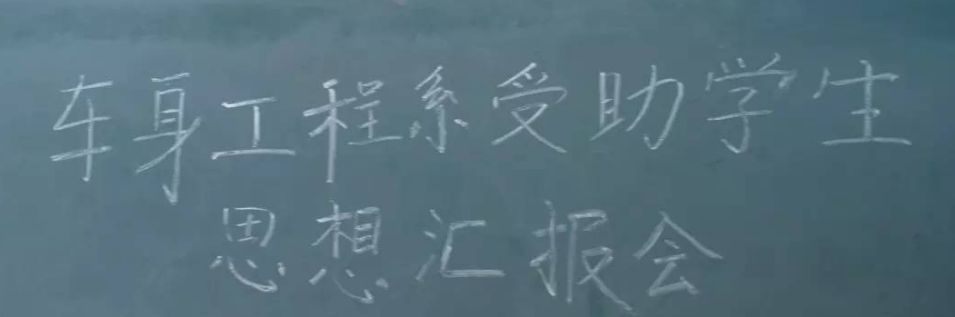 车身工程系受助学生
思想汇报会